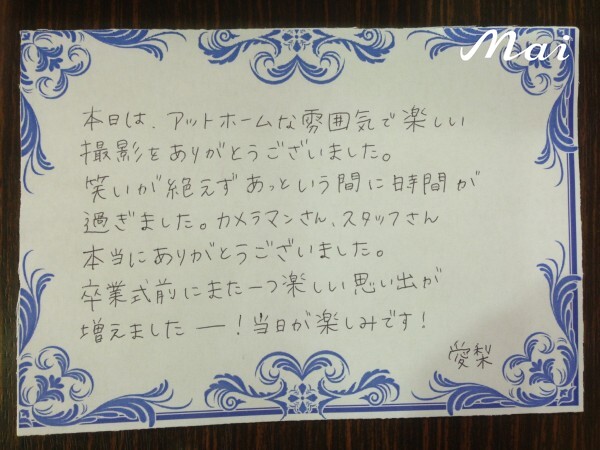 Mai
本日は、アットホームな雰囲気で楽しい
撮影をありがとうございました。
笑いが絶えずあっという間に時間が
過ぎました。カメラマンさん、スタッフさん
本当にありがとうございました。
卒業式前にまた一つ楽しい思い出が
増えましたー！当日が楽しみです！
愛梨